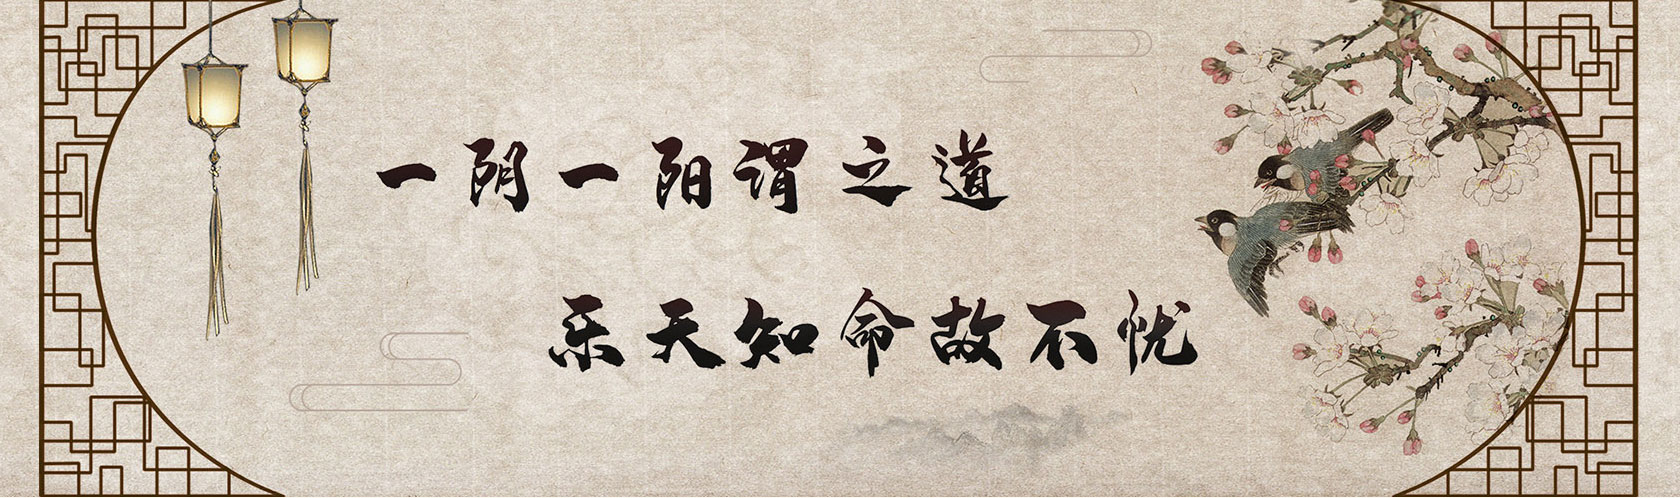 一阴一阳谓之道
乐天知命故不忧